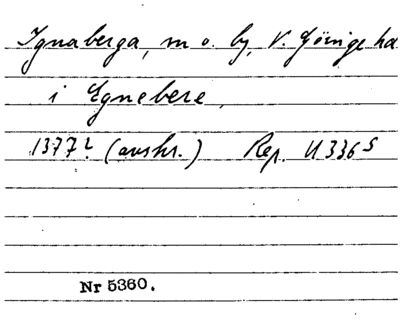 Ignaberga, m o. by, V. Göinge hd
i Egnebere,
1377? (avskr.) Rep. II 336 S
Nr 5360.